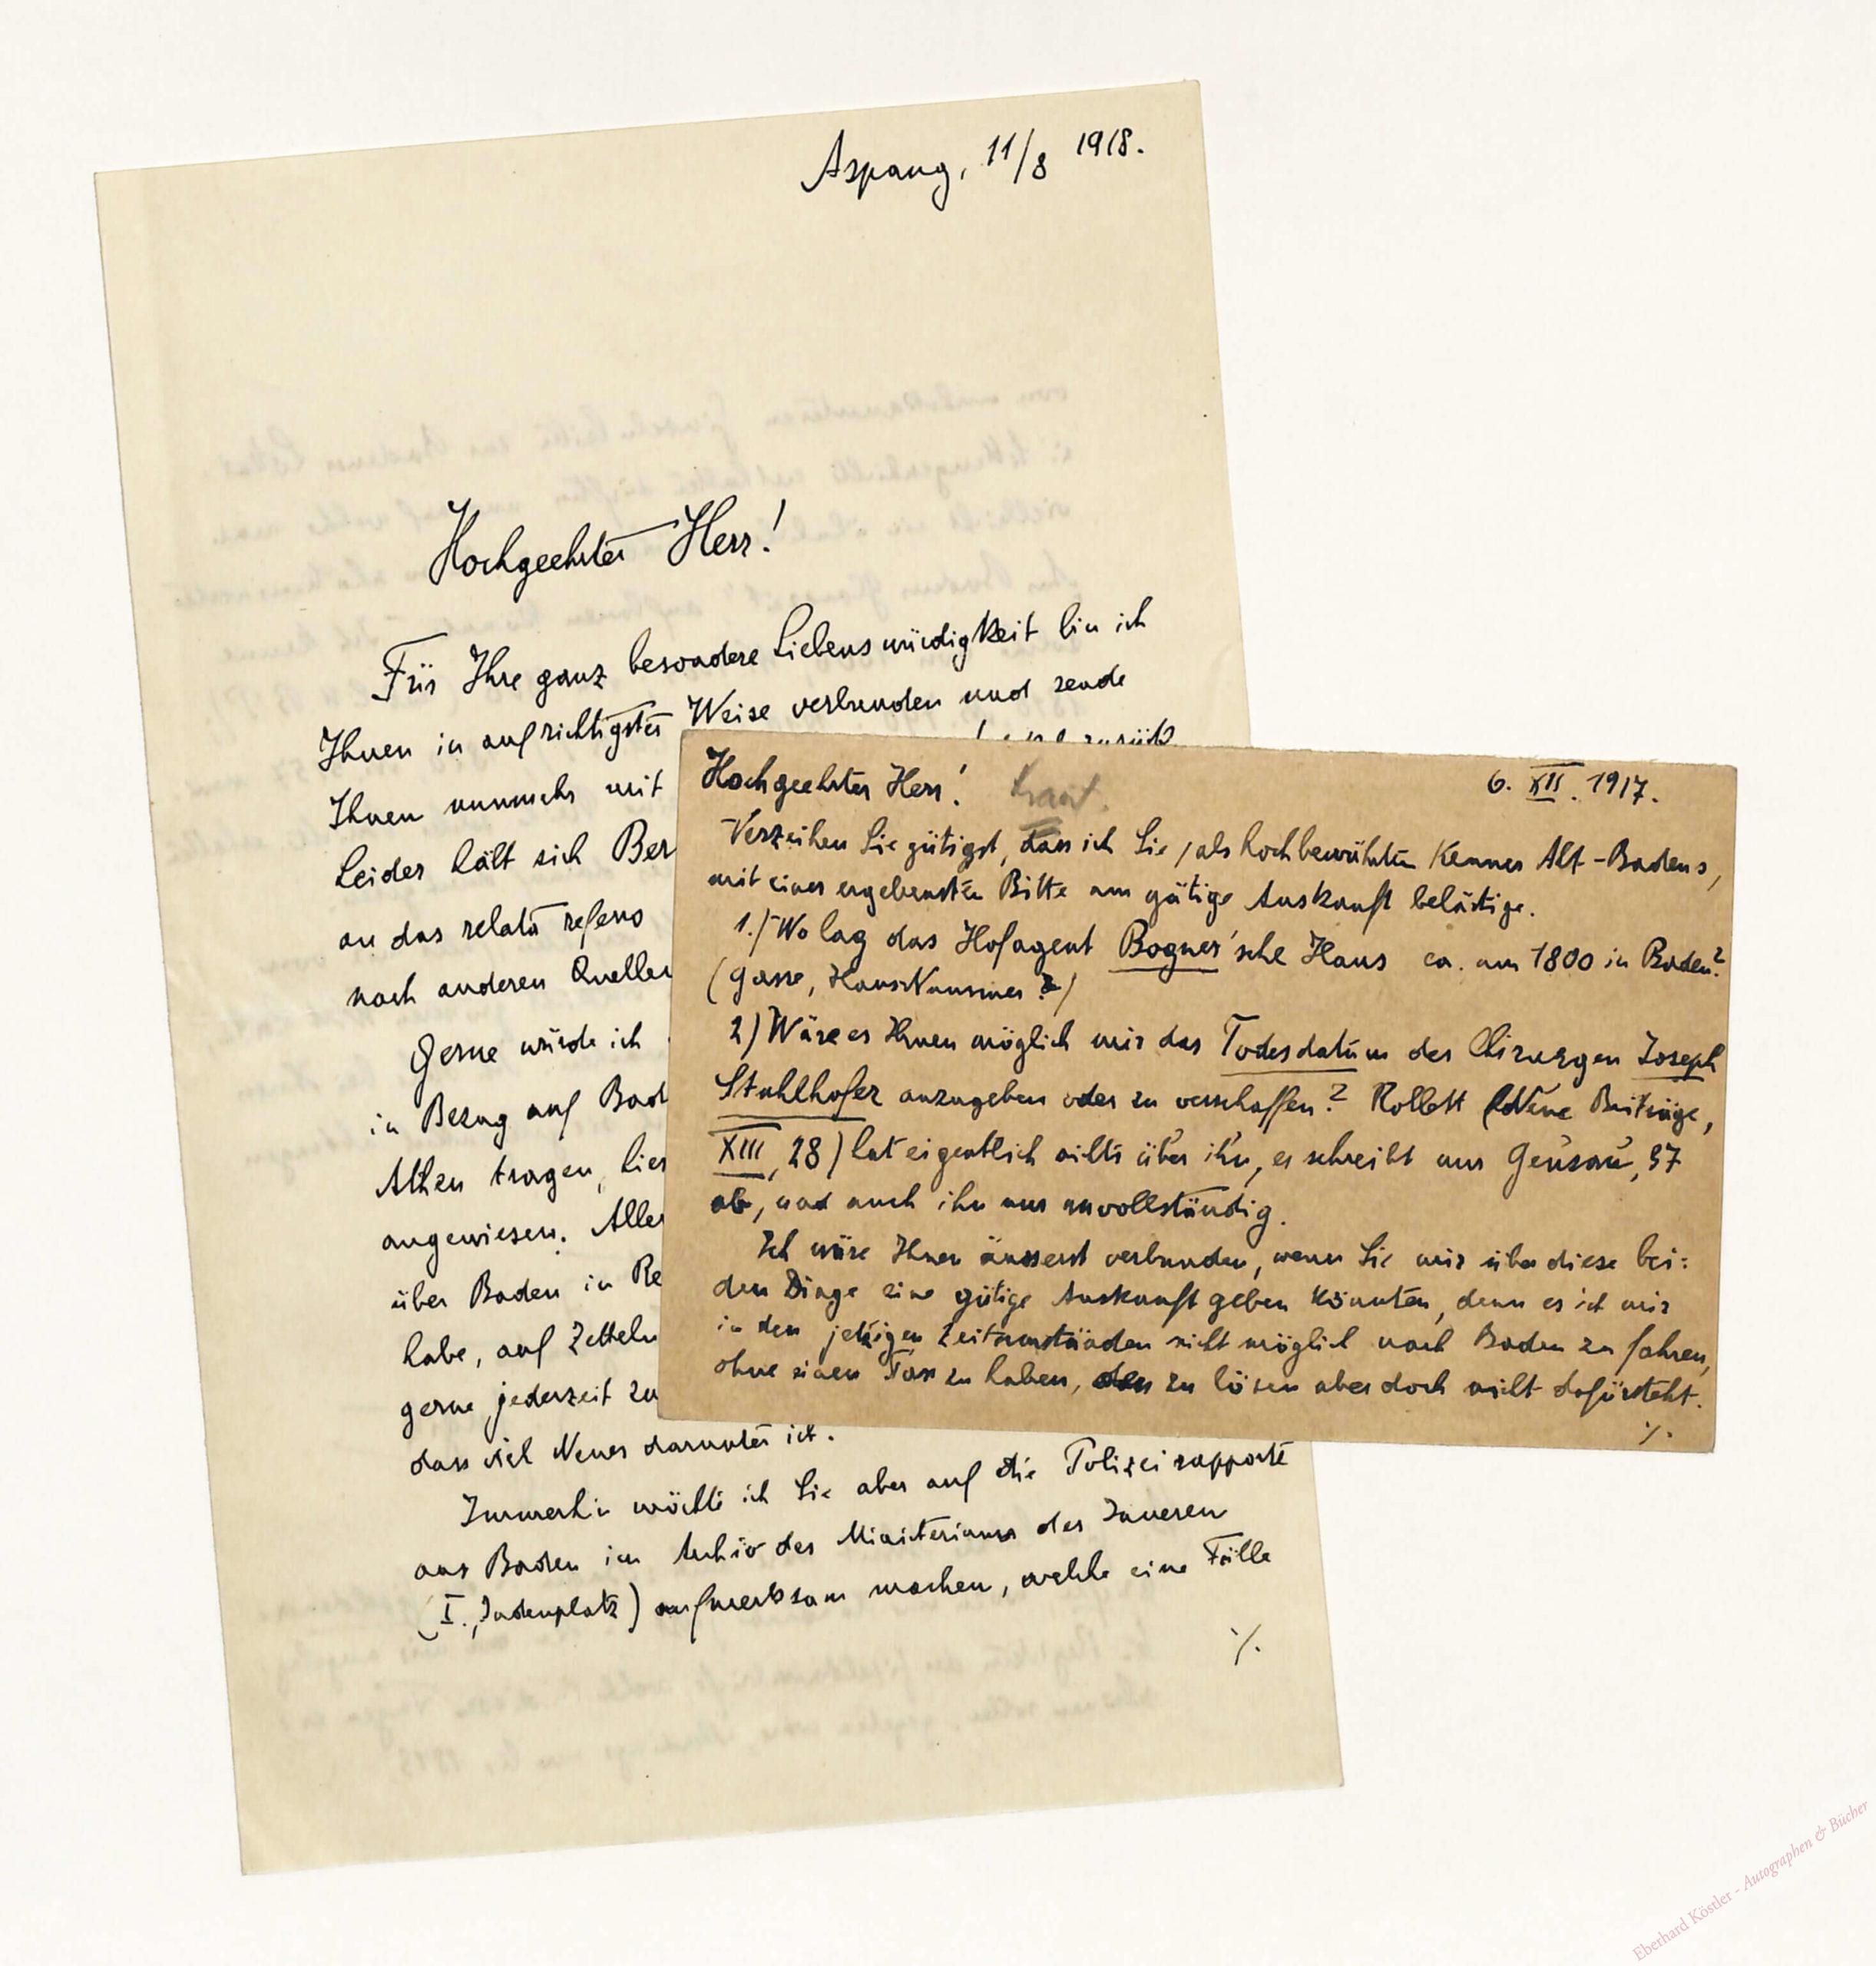 Aspang, 11/8 1918.
Hochgeehrter Herr!
Für Ihre ganz besondere Liebenswürdigkeit bin ich
Ihnen in aufrichtigster Weise verbunden und sende
Ihnen nunmehr mit zurück
Leider hält sich Ber
an das relata refero
nach anderen Quellen
Gerne würde ich
in Bezug auf Bad
Athen tragen, hier
angewiesen. Alles
über Baden in Re
habe, auf Zetteln
gerne jederzeit zu
dass viel Neues darunter ist.
Immerhin möchte ich Sie aber auf die Polizeirapporte
aus Baden im Archiv des Ministeriums des Inneren
(I., Judenplatz) aufmerksam machen, welche eine Fülle
./.
Hochgeehrter Herr!
6. XII. 1917.
Verzeihen Sie gütigst, dass ich Sie, als hochbewährten Kenner Alt-Badens,
mit einer ergebensten Bitte um gütige Auskunft belästige.
1.) Wo lag das Hofagent Bogner'sche Haus ca. um 1800 in Baden?
(Gasse, Haus Nummer?)
2) Wäre es Ihnen möglich mir das Todesdatum des Chirurgen Joseph
Stuhlhofer anzugeben oder zu verschaffen? Rollett (Neue Beiträge,
XIII, 28) hat eigentlich nichts über ihn, er schreibt nur Geusau, 97
ab, und auch ihn nur unvollständig.
Ich wäre Ihnen äusserst verbunden, wenn Sie mir über diese bei=
den Dinge eine gütige Auskunft geben könnten, denn es ist mir
in den jetzigen Zeitumständen nicht möglich nach Baden zu fahren,
ohne einen Pass zu haben, den zu lösen aber doch nicht dafürsteht.
./.
Eberhard Köstler - Autographen & Bücher